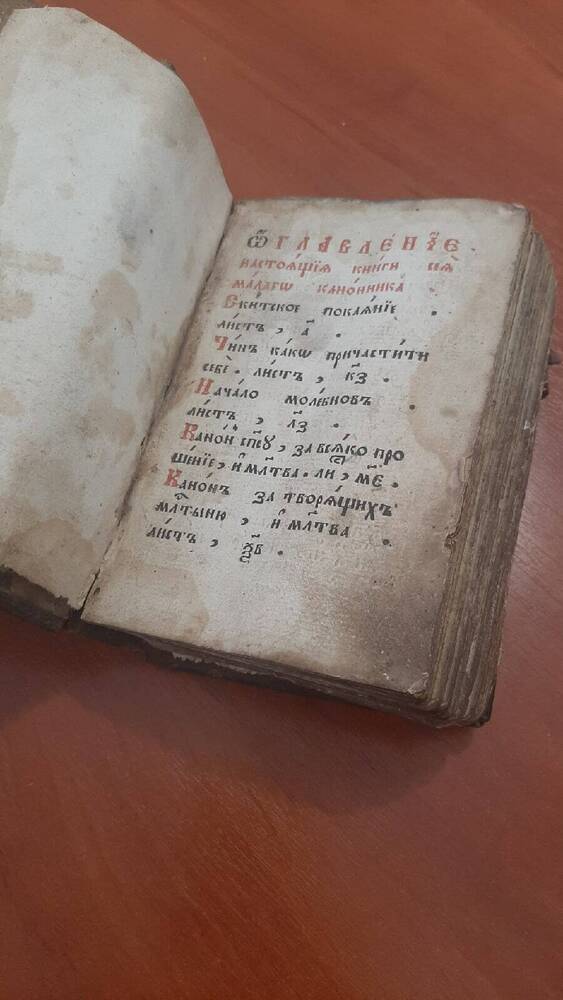 Ѿглавле́нїе
настоѧ́щїѧ кни́ги сеѧ̀
ма́лагѡ кано́нника
Ски́тское покаѧ́нїе .
ли́стъ , а҃ .
Чи́нъ ка́кѡ причасти́ти
себѐ . ли́стъ , к҃з .
Нача́ло моле́бновъ .
ли́стъ , л҃з .
Кано́н сп҃су , за всѧ́ко про
ше́нїе , и҆ мл҃тва . ли , м҃є .
Кано́нъ за творѧ́щихъ
мл҃тыню , и҆ мл҃тва .
ли́стъ ,